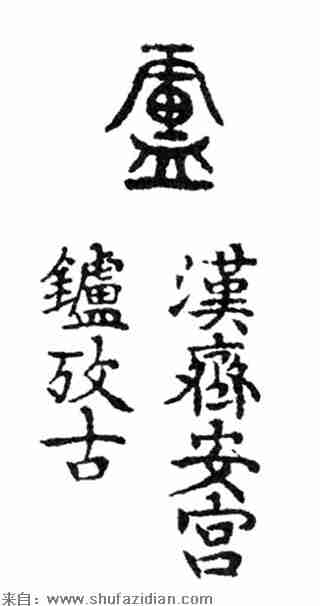 盧
漢齊安宮
鑪攷古
来自：www.shufazidian.com